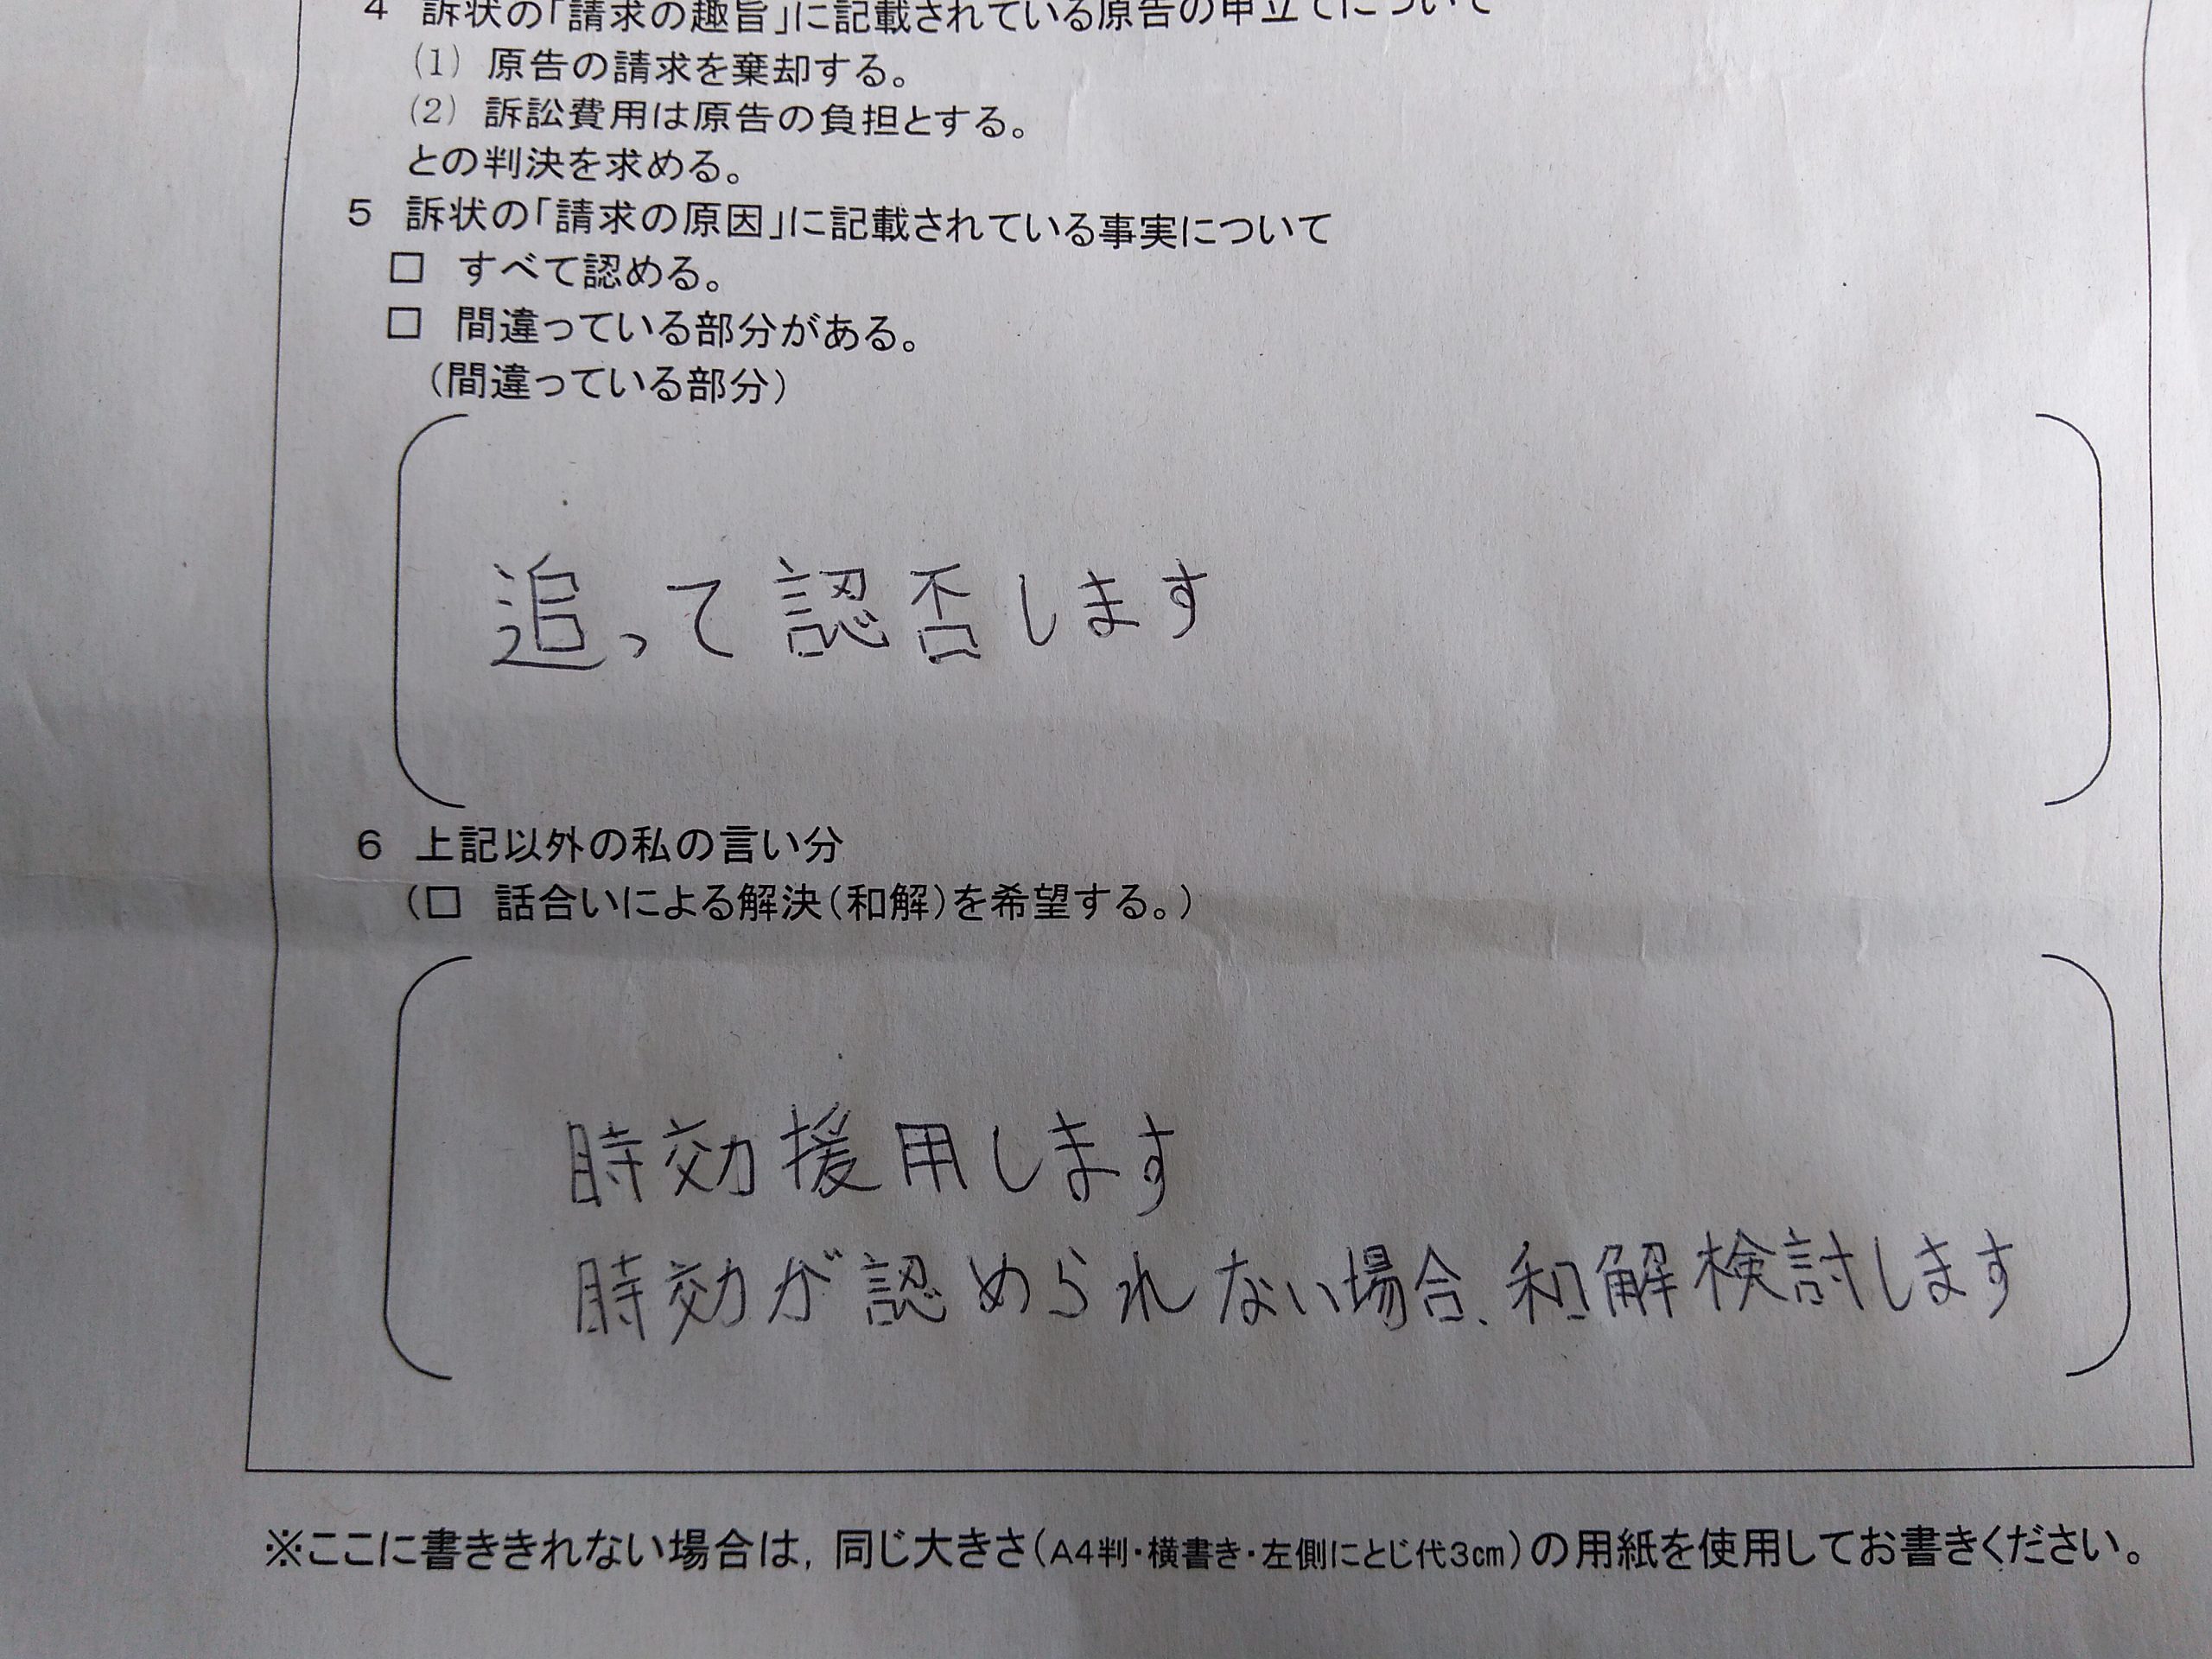 4 訴状の「請求の趣旨」に記載されている原告の申立てについて
(1) 原告の請求を棄却する。
(2) 訴訟費用は原告の負担とする。
との判決を求める。
5 訴状の「請求の原因」に記載されている事実について
□ すべて認める。
□ 間違っている部分がある。
(間違っている部分)
追って認否します
6 上記以外の私の言い分
(□ 話合いによる解決(和解)を希望する。)
時効援用します
時効が認められない場合、和解検討します
※ここに書ききれない場合は,同じ大きさ(A4判・横書き・左側にとじ代3㎝)の用紙を使用してお書きください。